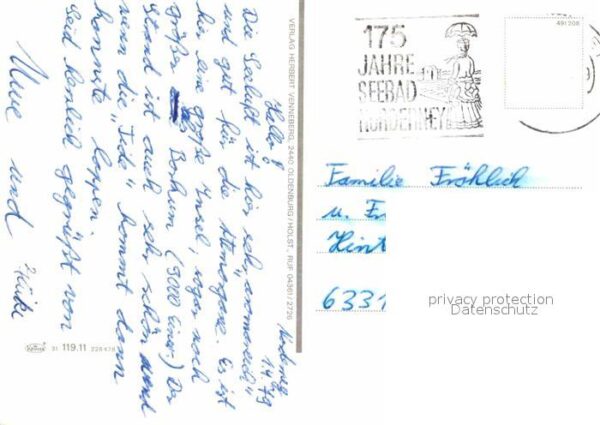 Norderney
1.4.79
Hallo!
Die Seeluft ist hier sehr „aromareich“
und gut für die Atmorgane. Es ist
hie eine große Insel, sogar noch
größer Borkum (8000 Einw.) Der
Strand ist auch sehr schön und
wenn die „Tide“ kommt dann
kannste
Seid herzlich gegrüßt von
und Heike
VERLAG HERBERT VENNEBERG, 2440 OLDENBURG/HOLST., RUF 04361/2726
31 119.11
175
JAHRE
SEEBAD
NORDERNEY
491 208
Familie Fröhlich
u. Fr
Hint
6331
privacy protection
Datenschutz